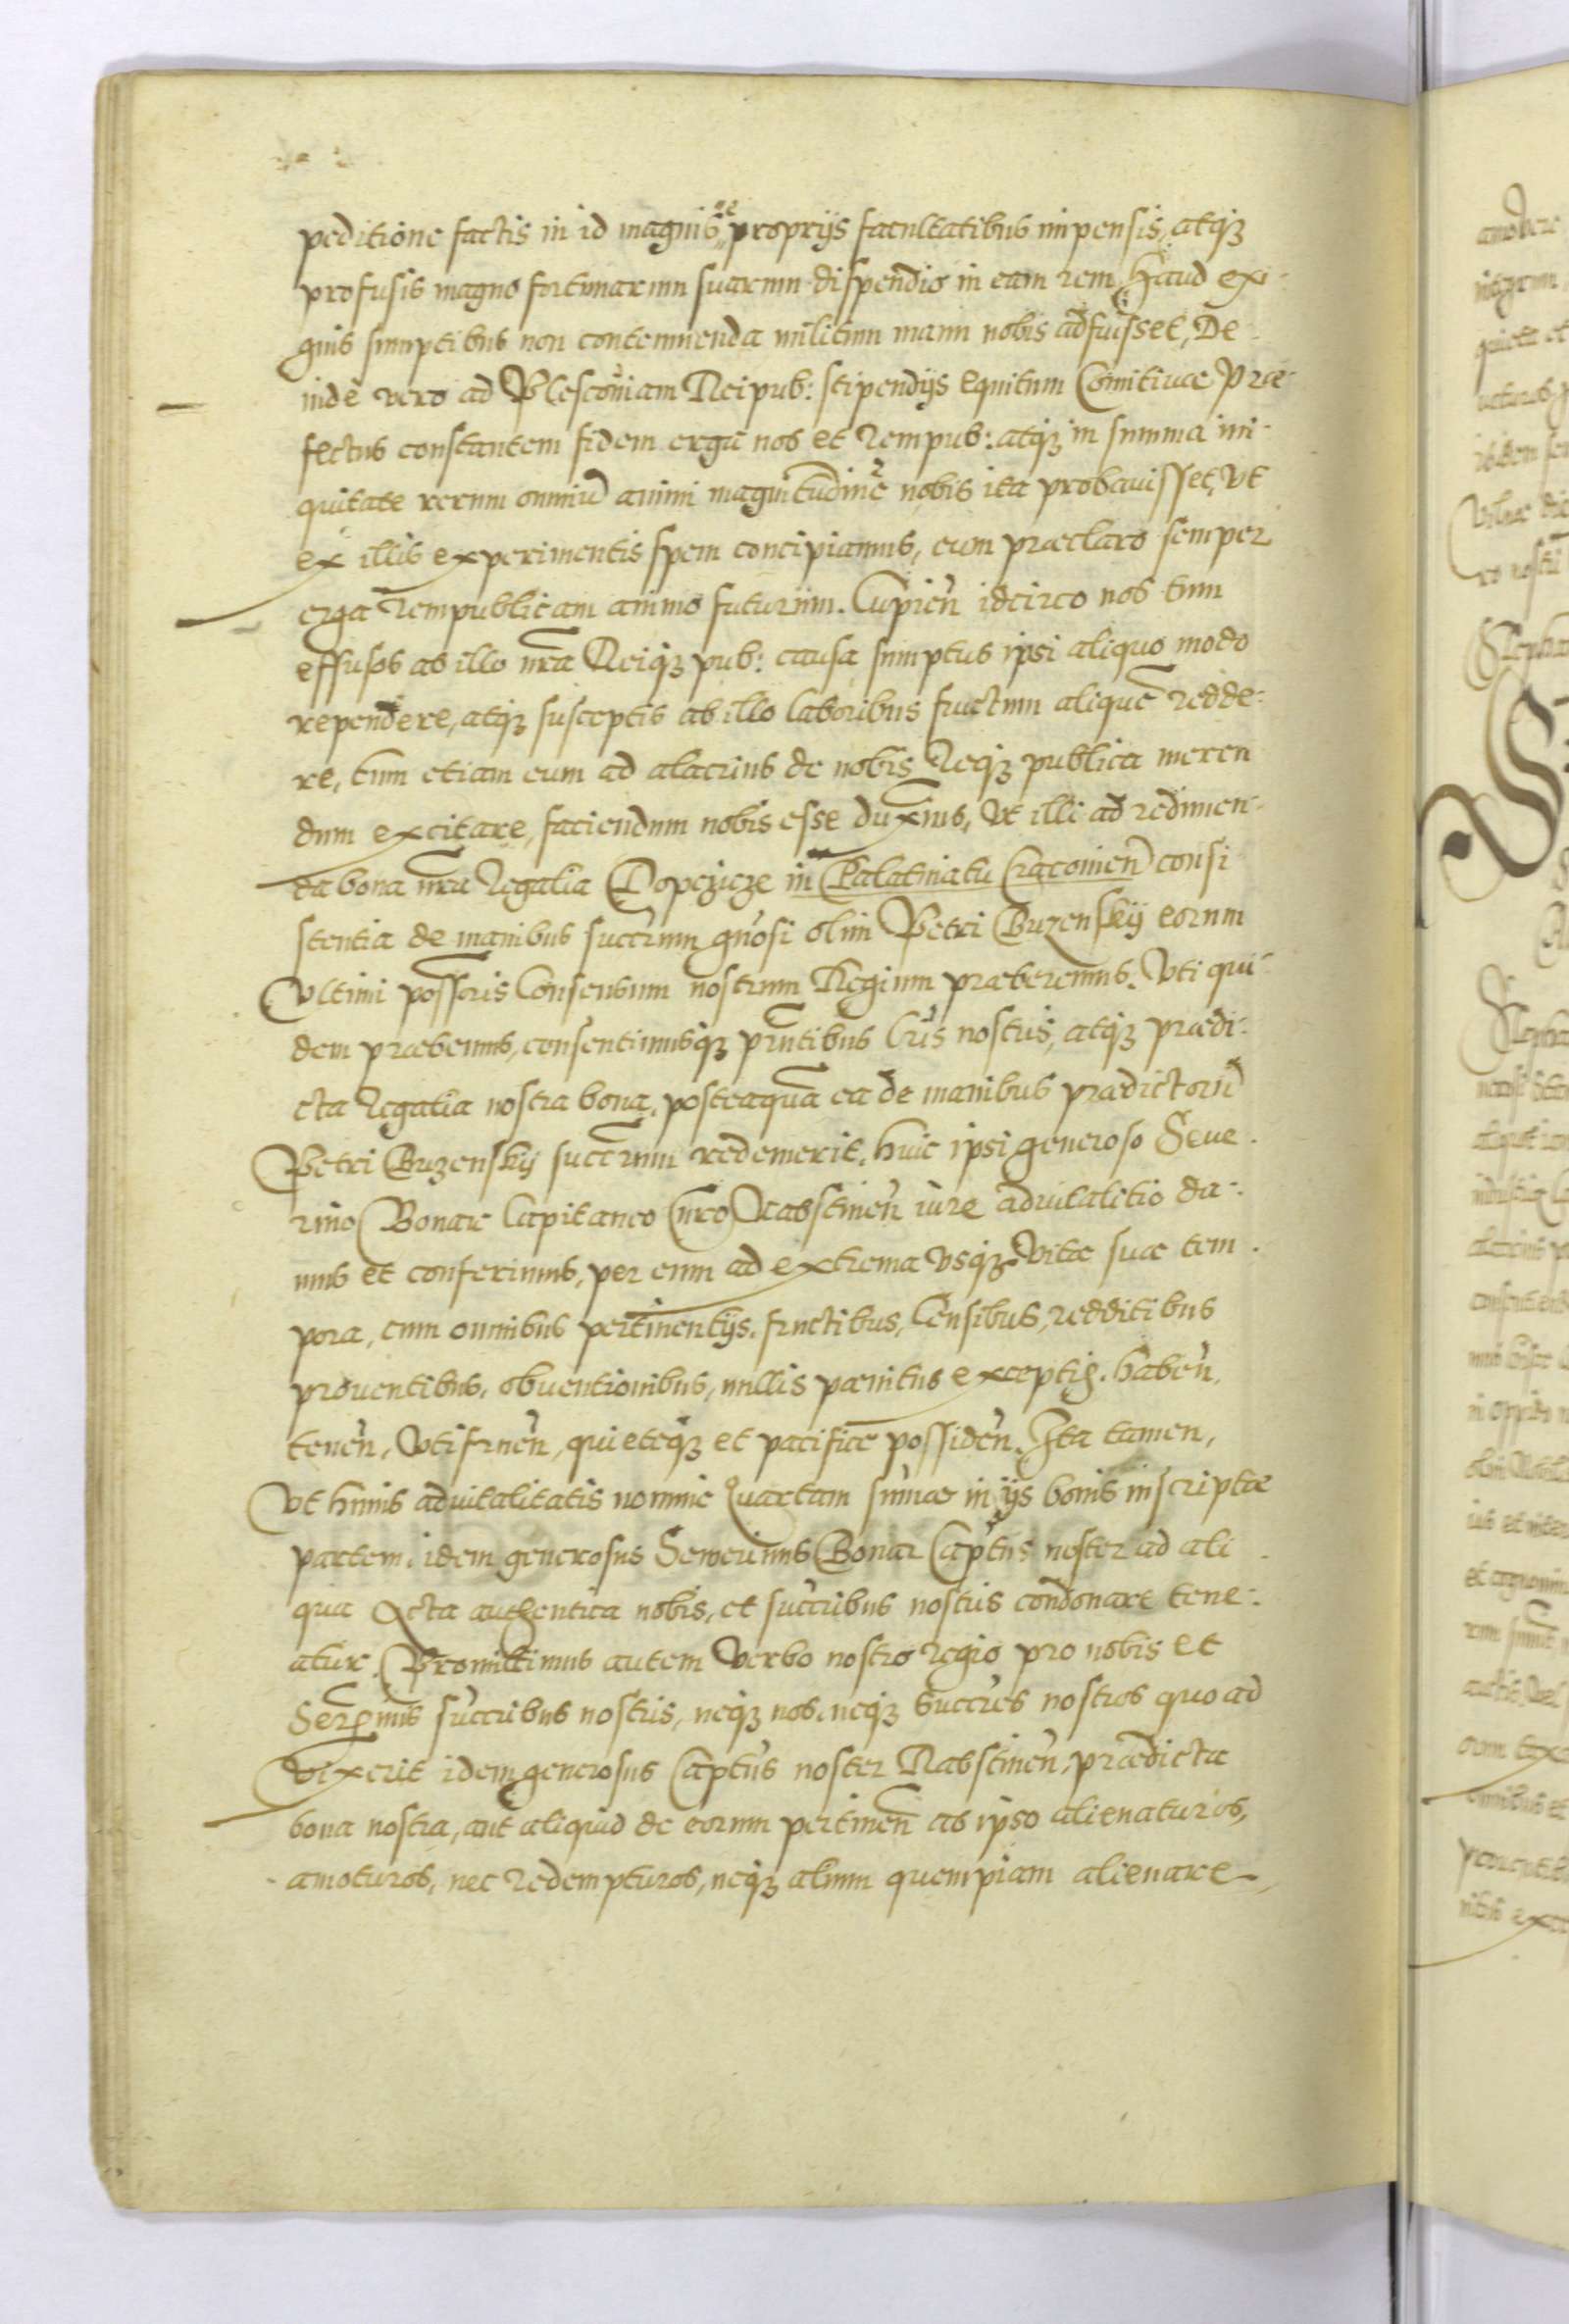 peditione factis in id magnis de proprijs facultatibus impensis, atqʒ
profusis magno fortunarum suarum dispendio in eam rem haud exi-
guis sumptibus non contemnenda militum manu nobis adfuisset, De-
inde vero ad Plescoviam Reipub: stipendijs Equitum Comitivae Prae-
fectus constantem fidem erga nos et Rempub: atqʒ in summa ini-
quitate rerum omniū animi magnitudinē nobis ita probavisset, Vt
ex illis experimentis spem concipiamus, eum praeclaro semper
erga Rempublicam animo futurum. Cupień idcirco nos tum
effusos ab illo nrā Reiqʒ pub: causa sumptus ipsi aliquo modo
rependere, atqʒ susceptis ab illo laboribus fructum aliquē redde-
re, tum etiam eum ad alacrius de nobis Reqʒ publica meren
dum excitare, faciendum nobis esse duximus, Vt illi ad redimen-
da bona nrā Regalia Dopczicze in Palatinatu Cracovień consi
stentia de manibus succrum gnosi olim Petri Buzenskij eorum
Vltimi possoris Consensum nostrum Regium praeberemus. Vti qui-
dem praebemus, consentimusqʒ prntibus lris nostris, atqʒ praedi-
cta Regalia nostra bona, posteaquā ea de manibus praedictorū
Petri Buzenskij succrum redemerit, huic ipsi generoso Seve-
rino Bonar Capitaneo nrō Rabstineń iure advitalitio da-
mus et conferimus, per eum ad extrema vsqʒ vitae suae tem-
pora, cum omnibus pertinentijs, fructibus, Censibus, redditibus
proventibus, obventionibus, nullis paenitus exceptis, habeń,
teneń, Vtifrueń, quieteqʒ et pacifice possideń. Ita tamen,
Vt huius advitalitatis nomine Quartam summae in ijs bonis inscriptae
partem, idem generosus Severinus Bonar Captūs noster ad ali-
qua Acta authentica nobis, et succribus nostris condonare tene-
atur. Promittimus autem Verbo nostro Regio pro nobis et
Sermis succribus nostris, neqʒ nos, neqʒ succres nostros quo ad
Vixerit idem generosus Captūs noster Rabstineń, praedicta
bona nostra, aut aliquid de eorum pertineń ab ipso alienaturos,
amoturos, nec redempturos, neqʒ alium quempiam alienare